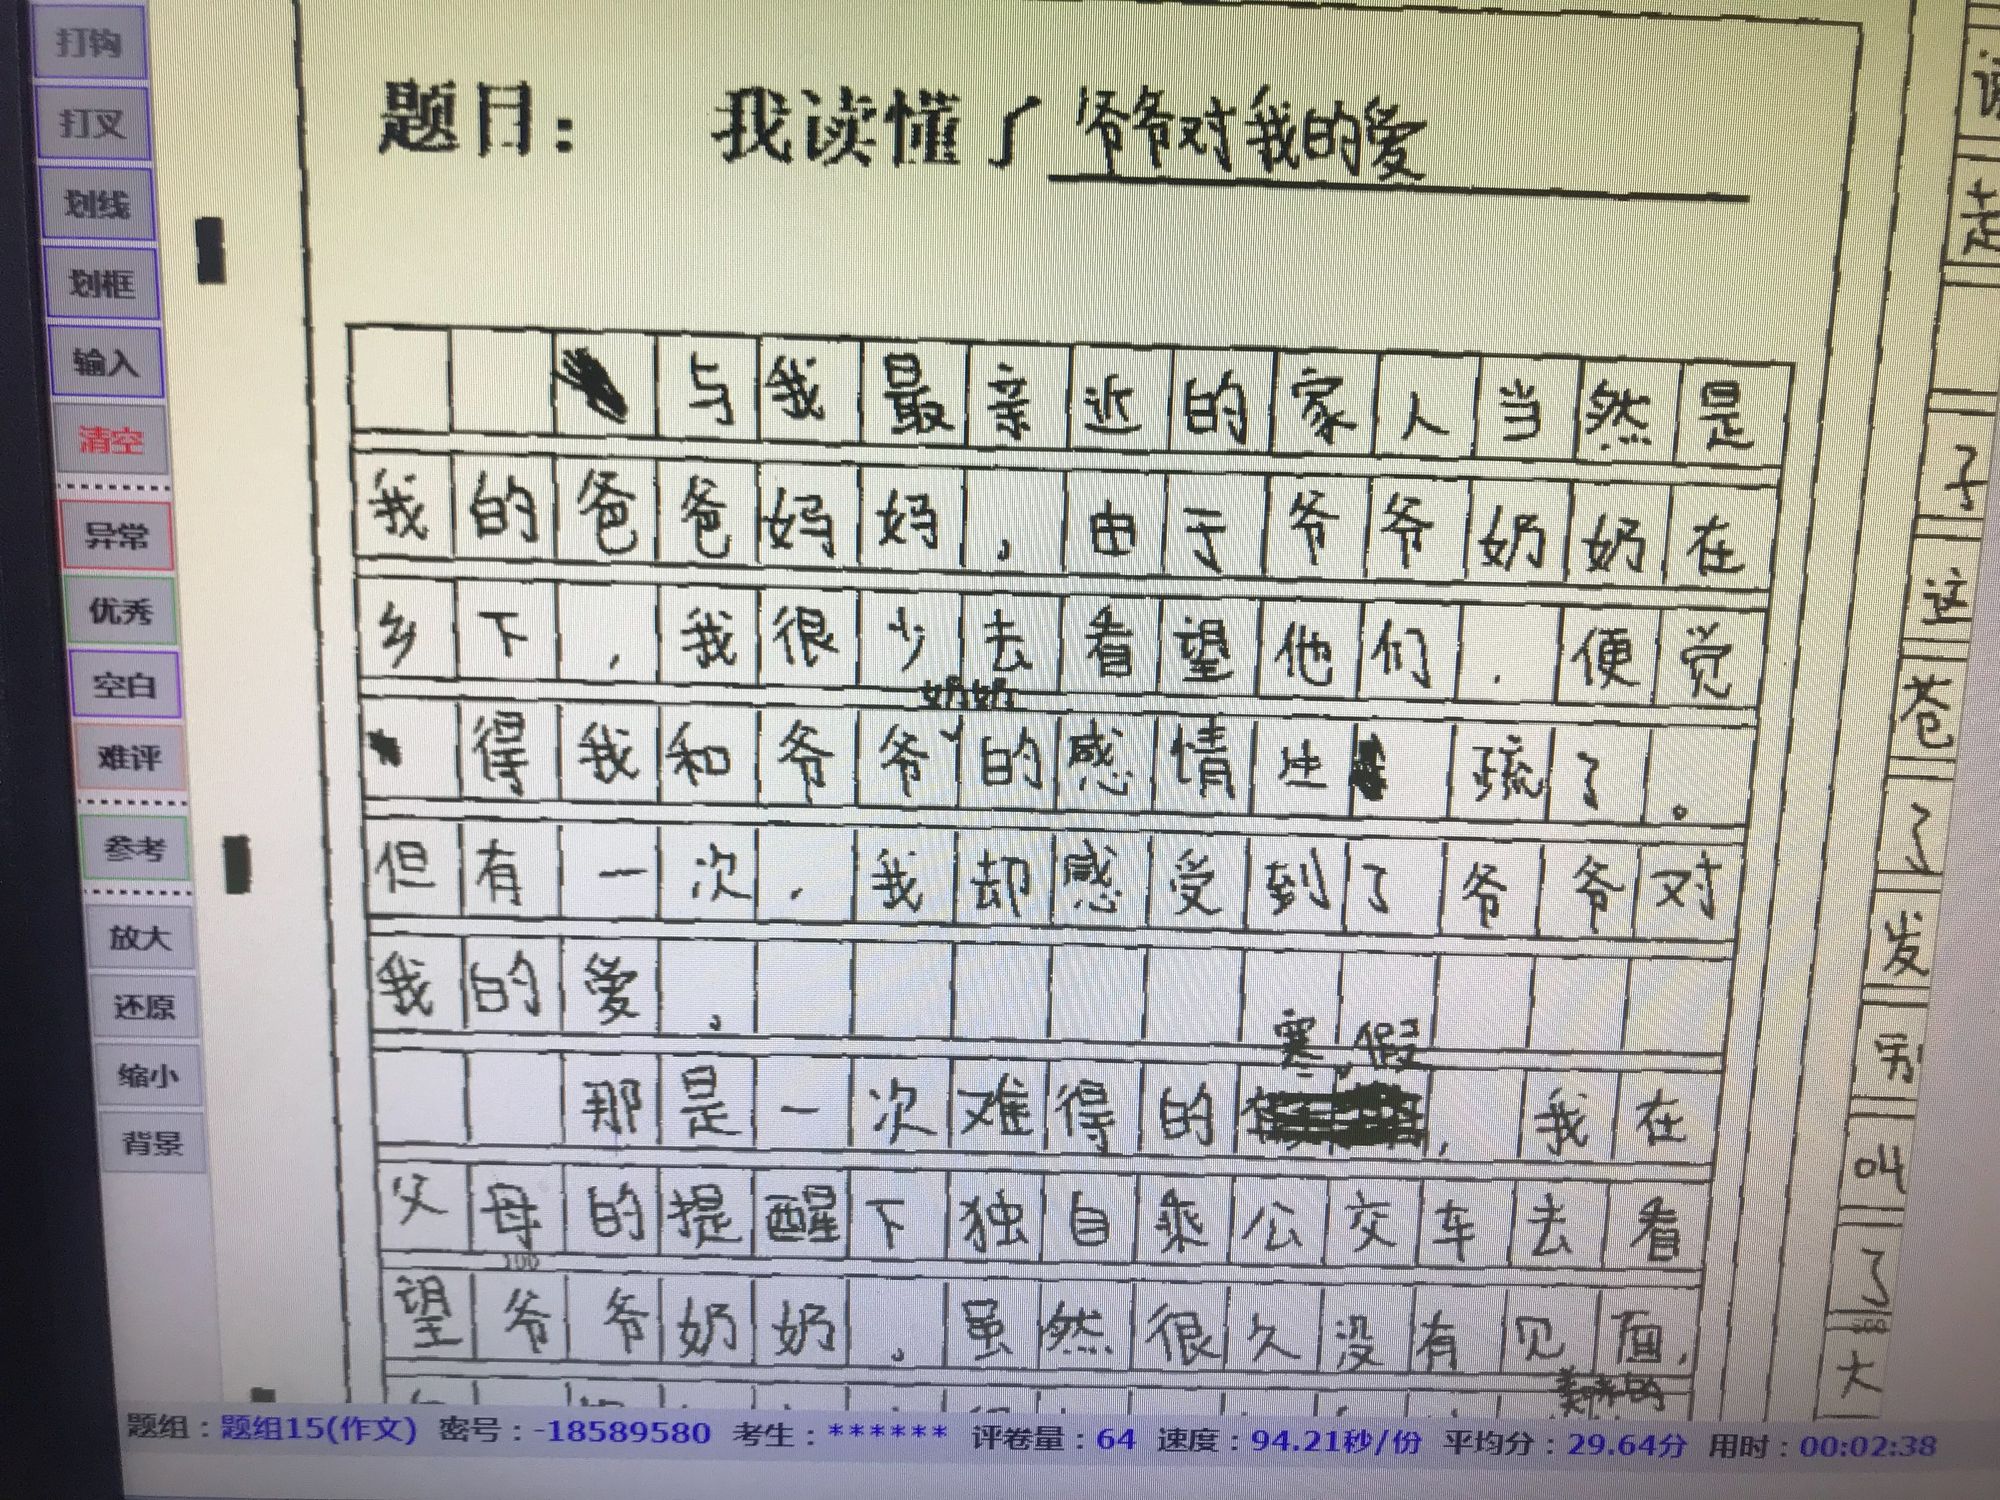 打钩
打叉
划线
划框
输入
清空
异常
优秀
空白
难评
参考
放大
还原
缩小
背景
题目：我读懂了爷爷对我的爱
与我最亲近的家人当然是
我的爸爸妈妈，由于爷爷奶奶在
乡下，我很少去看望他们，便觉
得我和爷爷奶奶的感情生疏了。
但有一次，我却感受到了爷爷对
我的爱。
那是一次难得的寒假，我在
父母的提醒下独自乘公交车去看
100
望爷爷奶奶。虽然很久没有见面，
子
这
苍
了
发
别
叫
了
300
大
题组：题组15(作文) 密号：-18589580 考生：****** 评卷量：64 速度：94.21秒/份 平均分：29.64分 用时：00:02:38